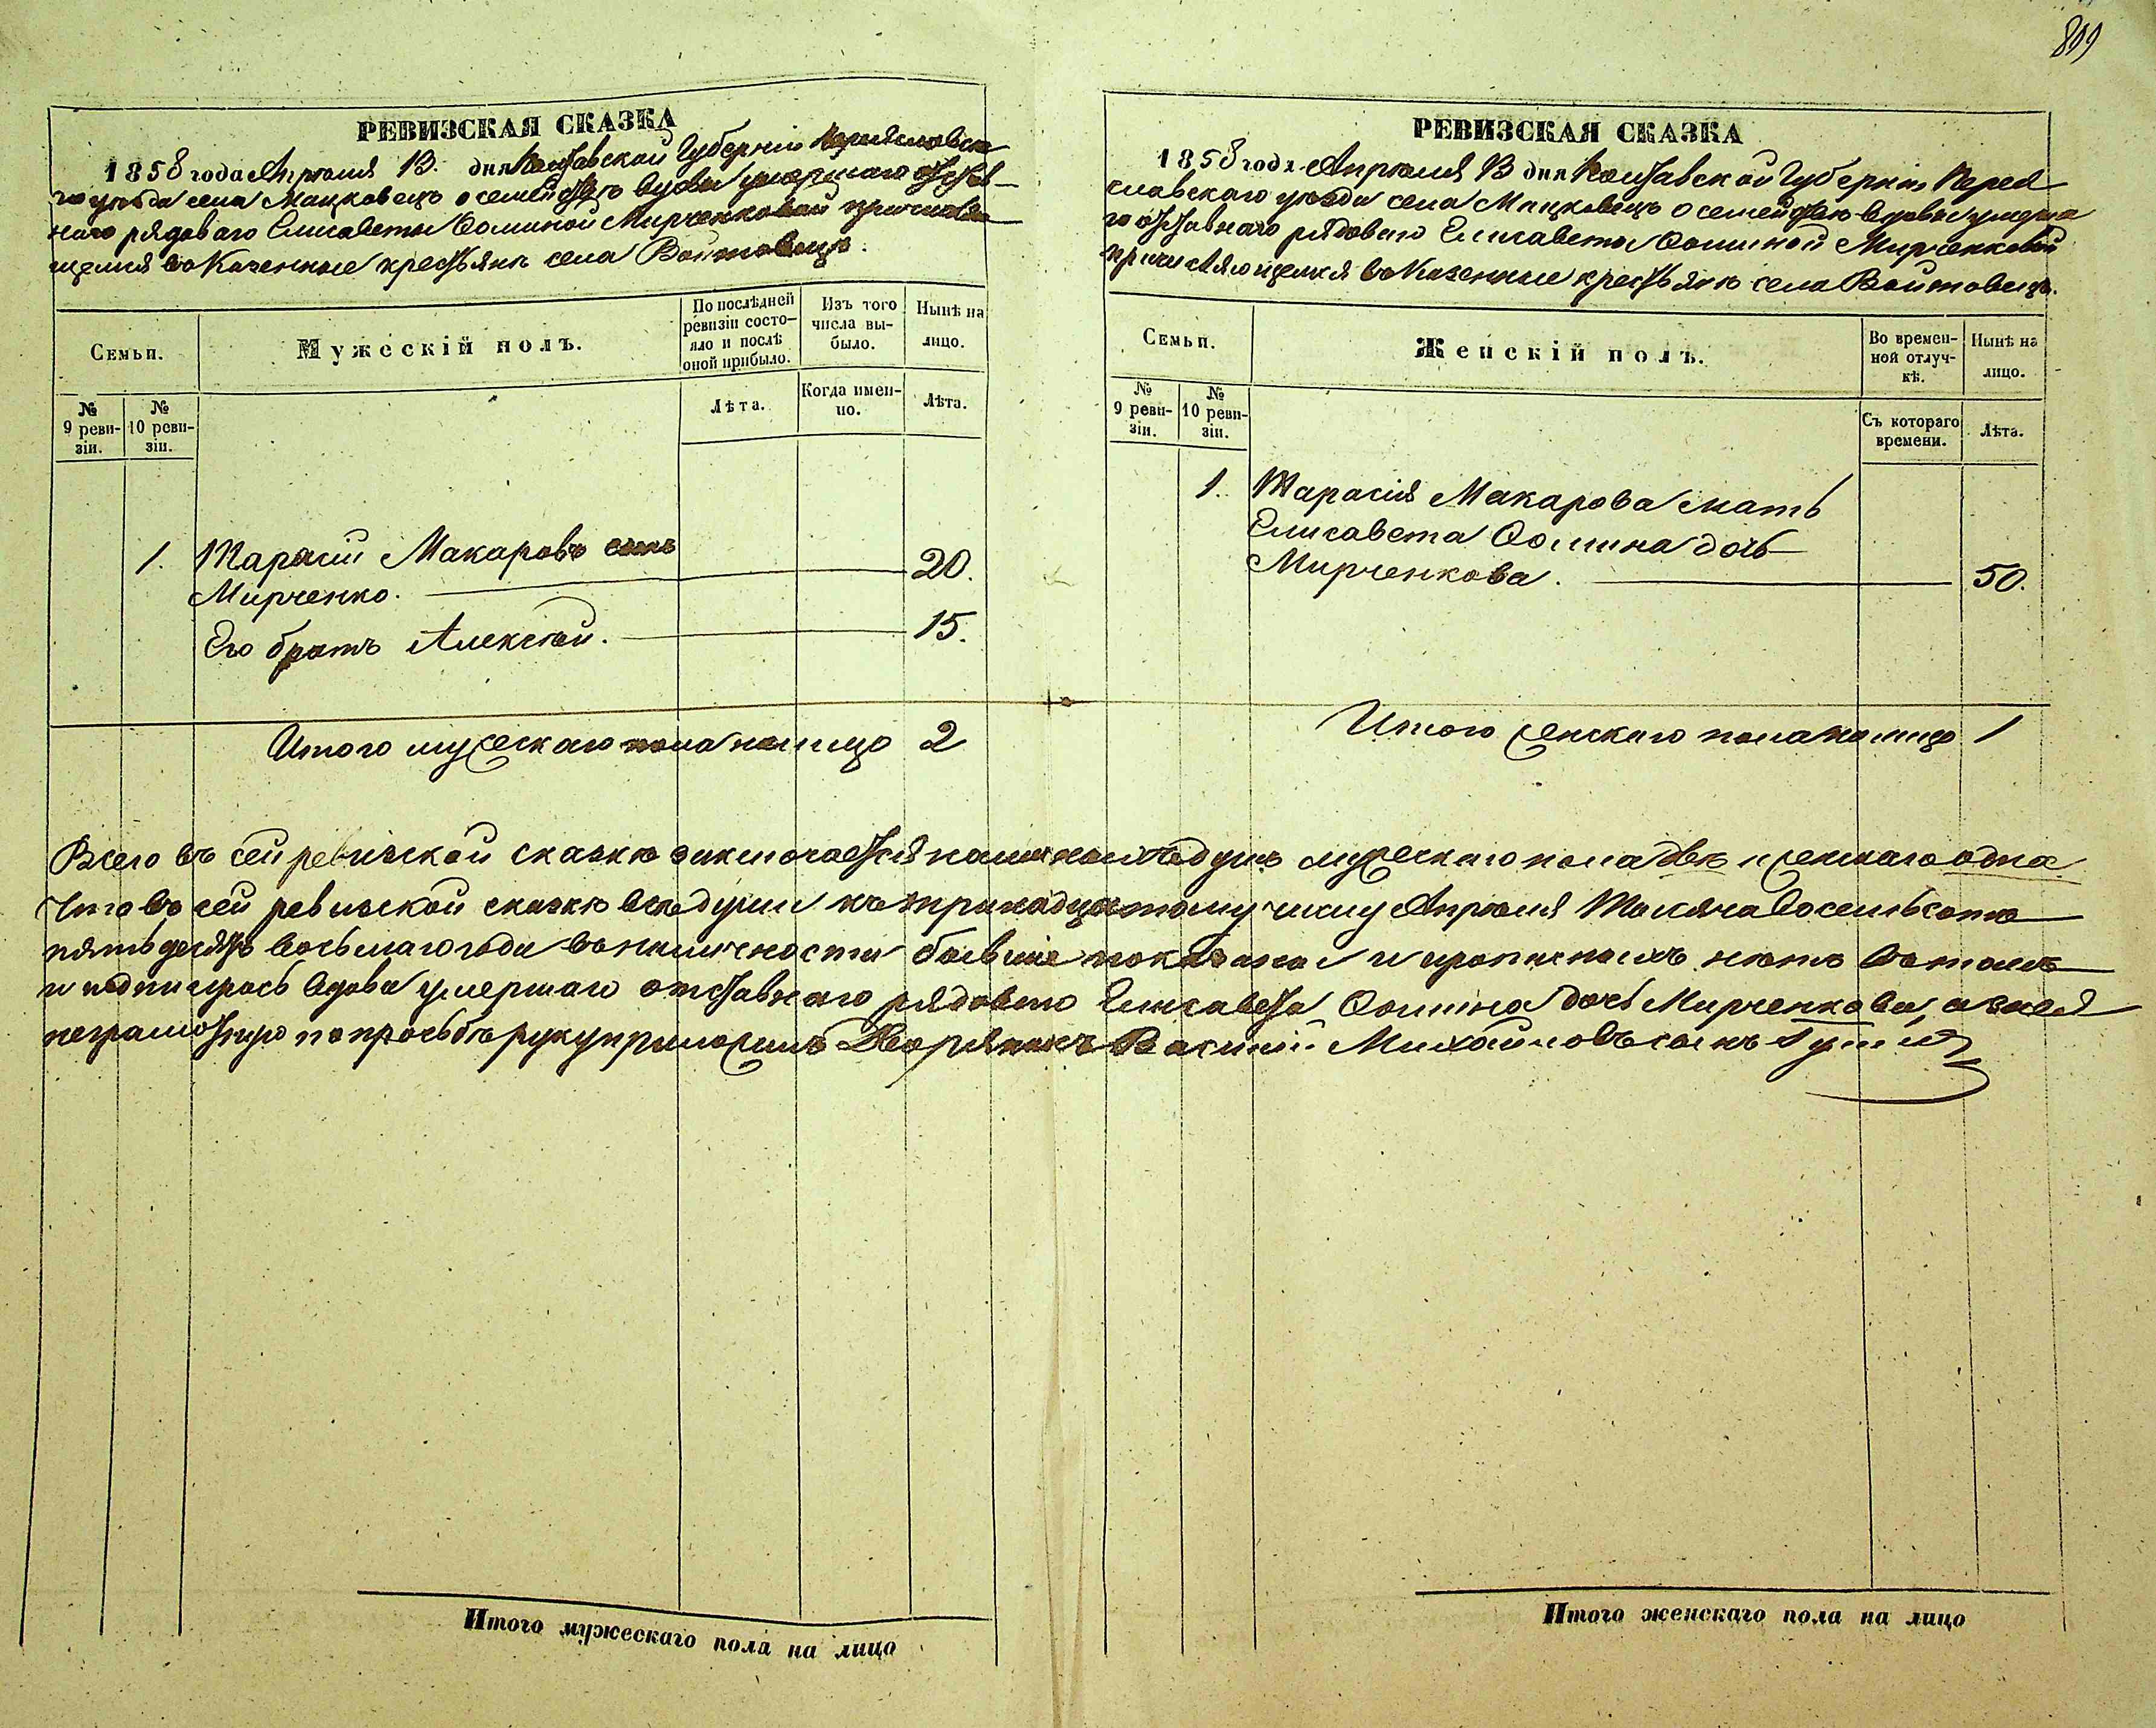 899
РЕВИЗСКАЯ СКАЗКА
1858 года Апрѣля 13. дня Полтавской Губерніи Переяславска
го уѣзда села Мацковецъ о семействѣ вдовы умершаго отстав-
наго рядоваго Елисаветы Ѳоминой Мирченковой причисляю
щемся въ Казенные крестьяне села Войтовецъ.
Семьи.
Мужескій полъ.
По послѣдней ревизіи состо-яло и послѣ оной прибыло.
Изъ того числа вы-было.
Нынѣ на лицо.
№ 9 реви-зіи.
№ 10 реви-зіи.
Лѣта.
Когда имен-но.
Лѣта.
1. Тарасій Макаровъ сынъ
Мирченко. 20.
Его братъ Алексѣй. 15.
Итого мужескаго пола налицо 2
РЕВИЗСКАЯ СКАЗКА
1858 года Апрѣля 13 дня Полтавской Губерніи Перея
славскаго уѣзда села Мацковецъ о семействѣ вдовы умерша
го отставнаго рядоваго Елисаветы Ѳоминой Мирченковой
причисляющемся въ Казенные крестьяне села Войтовецъ.
Семьи.
Женскій полъ.
Во времен-ной отлуч-кѣ.
Нынѣ на лицо.
№ 9 реви-зіи.
№ 10 реви-зіи.
Съ котораго времени.
Лѣта.
1. Тарасія Макарова мать
Елисавета Ѳомина дочь
Мирченкова. 50.
Итого женскаго пола налицо 1
Всего въ сей ревизской сказкѣ заключается наличныхъ душъ мужескаго пола двѣ и женскаго одна
Что въ сей ревизской сказкѣ всѣ души къ тринадцатому числу Апрѣля Тысяча восемьсотъ
пятьдесятъ восьмаго года въ наличности бывшіе показаны и прописныхъ нѣтъ въ томъ
и подписуюсь вдова умершаго отставнаго рядоваго Елисавета Ѳомина дочь Мирченкова, а за нея
неграмотную по просьбѣ руку приложилъ Дворянинъ Василій Михайловъ сынъ
Итого мужескаго пола на лицо
Итого женскаго пола на лицо